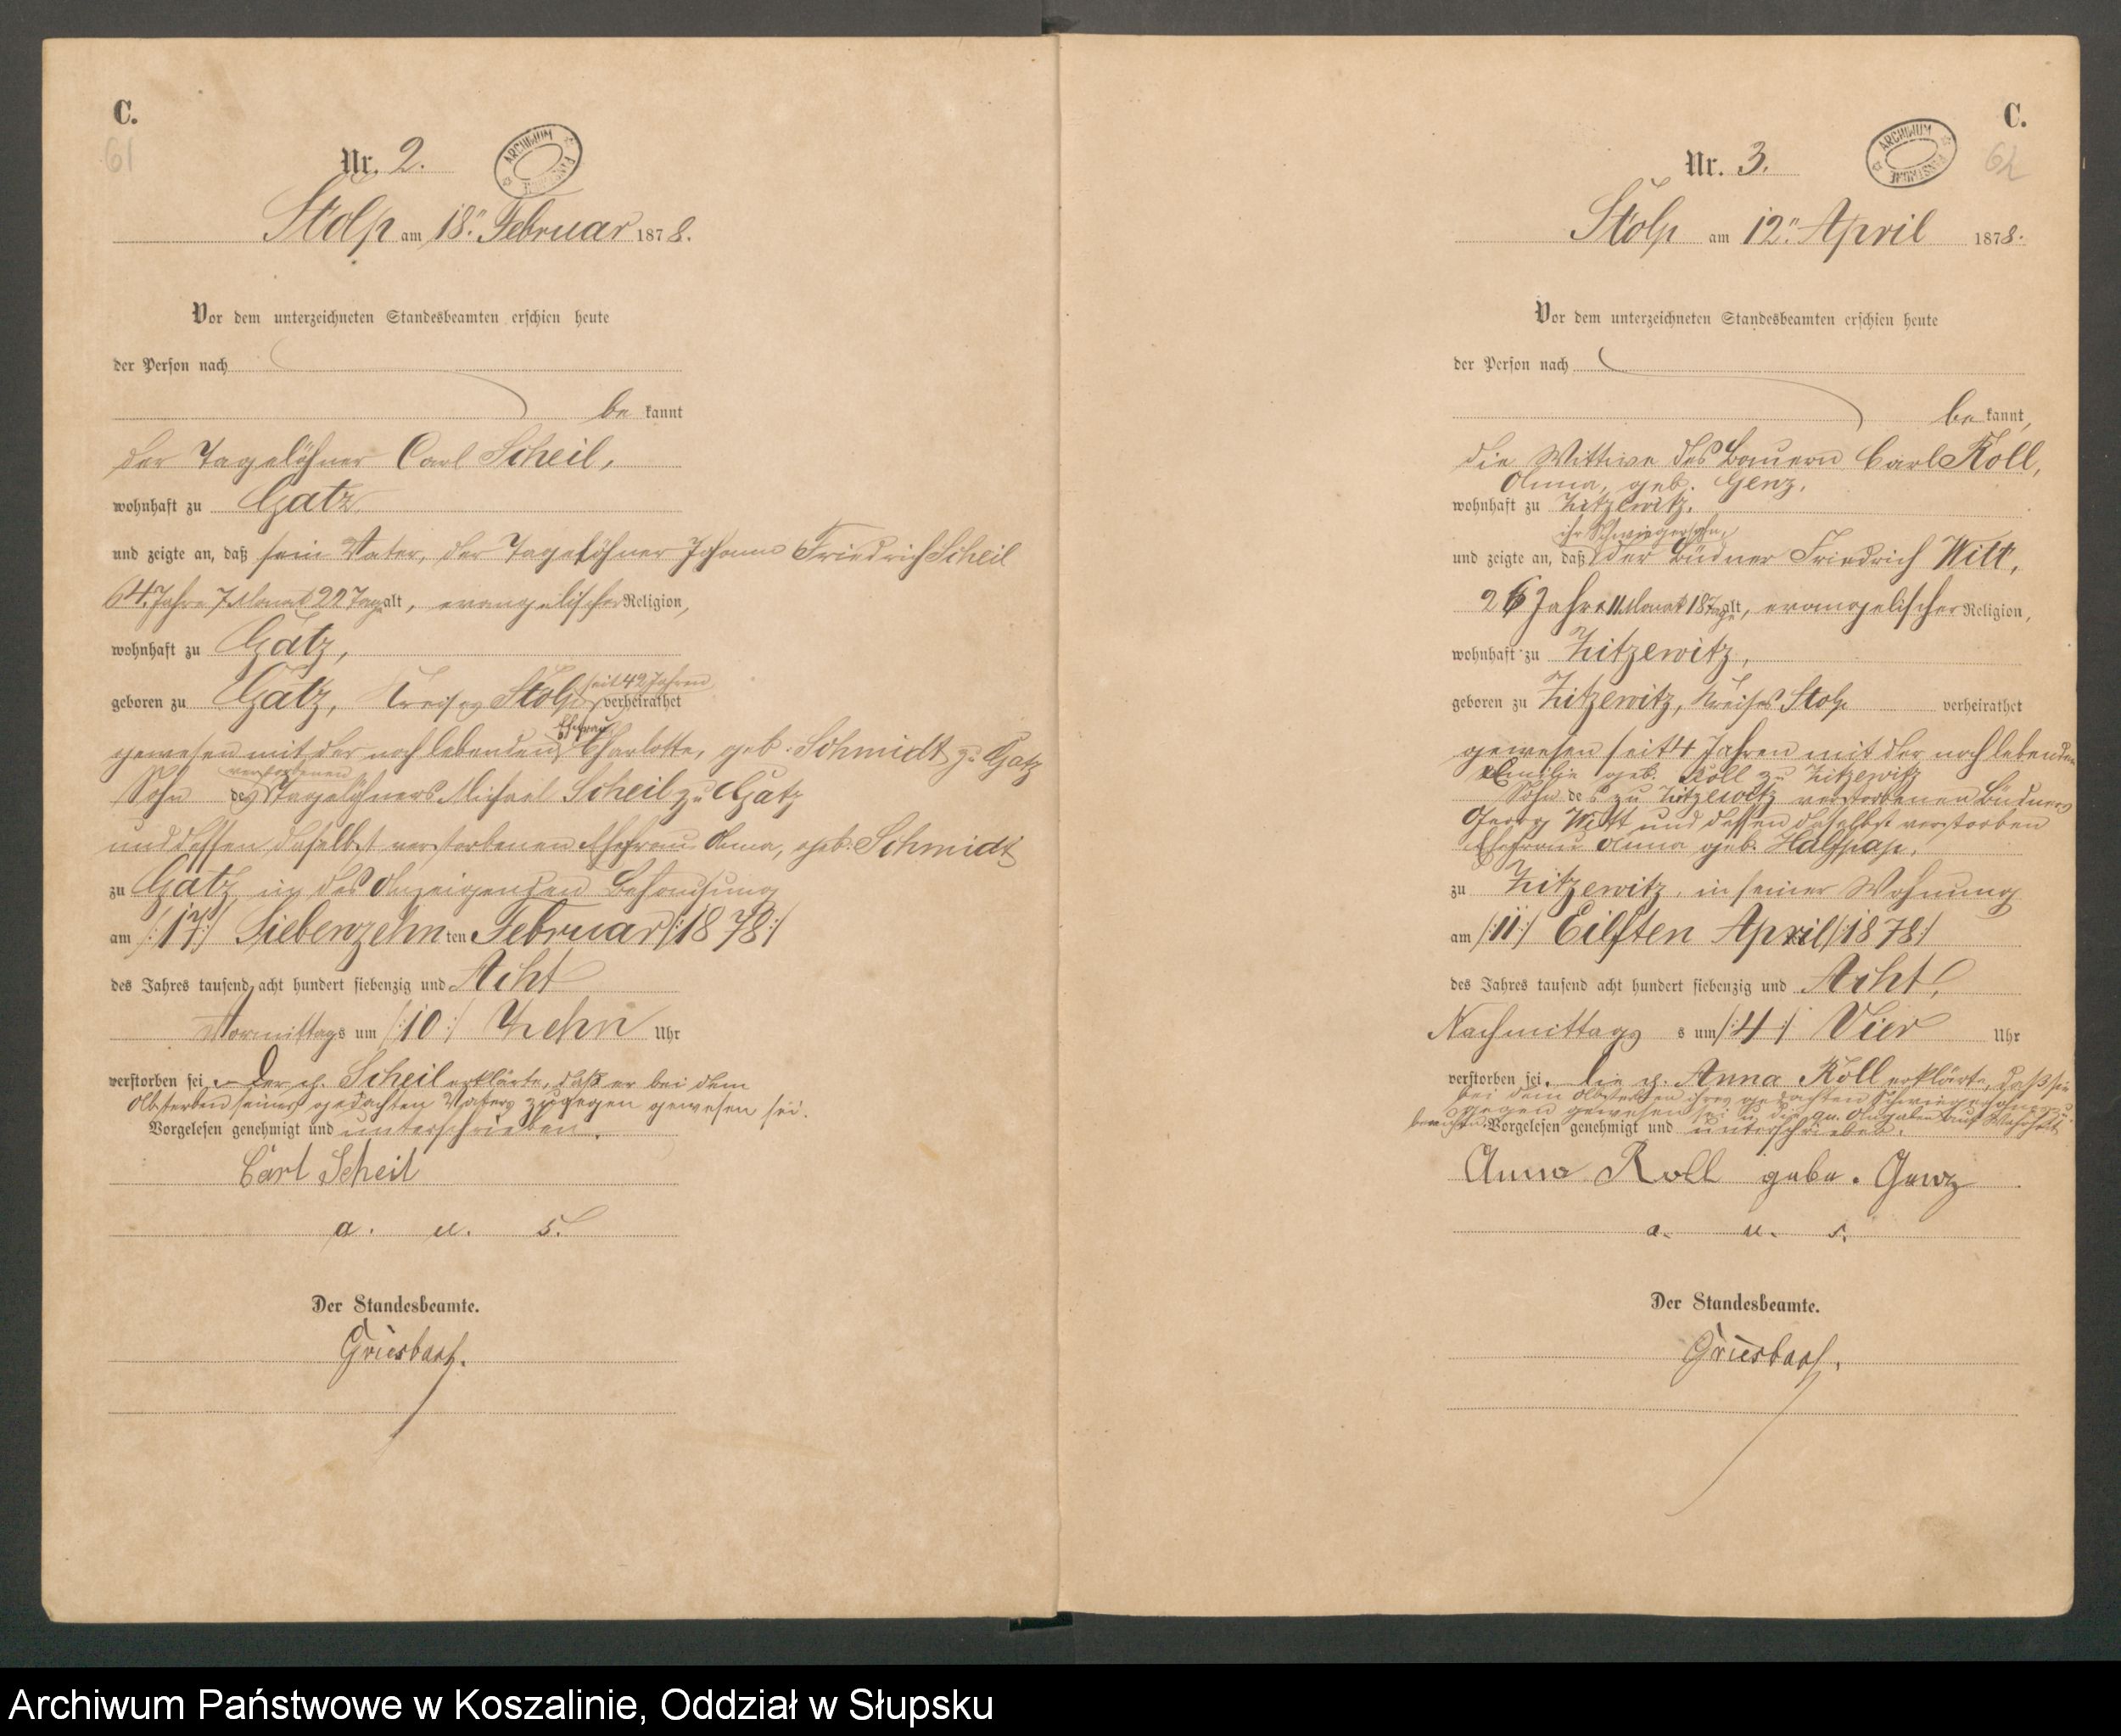 C.
61
Nr. 2.
ARCHIWUM PAŃSTWOWE
Stolp am 18ten Februar 1878.
Vor dem unterzeichneten Standesbeamten erschien heute
der Person nach
be kannt
der Tagelöhner Carl Scheil,
wohnhaft zu Gatz
und zeigte an, daß sein Vater, der Tagelöhner Johann Friedrich Scheil
64 Jahre 7 Monat 22 Tag alt, evangelischer Religion,
wohnhaft zu Gatz,
seit 42 Jahren
geboren zu Gatz, Kreises Stolp verheirathet
Ehefrau
gewesen mit der noch lebenden Charlotte, geb. Schmidt zu Gatz
verstorbenen
Sohn des Tagelöhners Michael Scheil zu Gatz
und dessen daselbst verstorbenen Ehefrau Anna, geb. Schmidt
zu Gatz in des Anzeigenden Behausung
am /:17:/ Siebenzehn ten Februar /:1878:/
des Jahres tausend acht hundert siebenzig und Acht
Vormittags um /:10:/ Zehn Uhr
verstorben sei. Der p. Scheil erklärte, daß er bei dem
Absterben seines gedachten Vaters zugegen gewesen sei.
Vorgelesen genehmigt und unterschrieben.
Carl Scheil
a. u. s.
Der Standesbeamte.
Griesbach.
C.
62
Nr. 3.
ARCHIWUM PAŃSTWOWE
Stolp am 12ten April 1878.
Vor dem unterzeichneten Standesbeamten erschien heute
der Person nach
be kannt,
die Wittwe des Bauern Carl Koll,
Anna, geb. Genz,
wohnhaft zu Zitzewitz,
ihr Schwiegersohn,
und zeigte an, daß der Büdner Friedrich Witt,
26 Jahre 11 Monat 18 Tage alt, evangelischer Religion,
wohnhaft zu Zitzewitz,
geboren zu Zitzewitz, Kreises Stolp verheirathet
gewesen seit 4 Jahren mit der noch lebenden
Emilie geb. Koll zu Zitzewitz
Sohn des zu Zitzewitz verstorbenen Büdners
Georg Witt und dessen daselbst verstorben
Ehefrau Anna geb. Halfpap,
zu Zitzewitz, in seiner Wohnung
am /:11:/ Eilften April /:1878:/
des Jahres tausend acht hundert siebenzig und Acht,
Nachmittags s um /:4:/ Vier Uhr
verstorben sei. Die p. Anna Koll erklärte, daß sie
bei dem Absterben ihres gedachten Schwiegersohnes zu
gegen gewesen sei u. die Angaben auf Wahrheit
beruhen. Vorgelesen genehmigt und unterschrieben.
Anna Koll geb. Genz
a. u. s.
Der Standesbeamte.
Griesbach.
Archiwum Państwowe w Koszalinie, Oddział w Słupsku